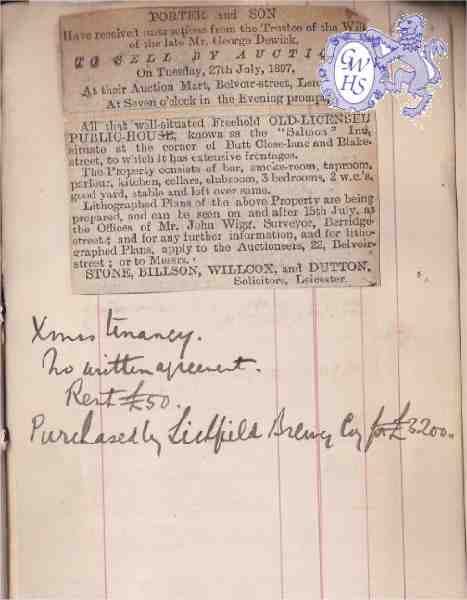 PORTER and SON
Have received instructions from the Trustee of the Will
of the late Mr. George Dewick,
TO SELL BY AUCTION
On Tuesday, 27th July, 1897,
At their Auction Mart, Belvoir-street,
At Seven o'clock in the Evening prompt,
GWHS
All that well-situated Freehold OLD-LICENSED
PUBLIC-HOUSE, known as the "Saloon" Inn,
situate at the corner of Butt Close-lane and Blake-
street, to which it has extensive frontages.
The Property consists of bar, smoke-room, taproom,
parlour, kitchen, cellars, clubroom, 3 bedrooms, 2 w.c.'s,
good yard, stable and loft over same.
Lithographed Plans of the above Property are being
prepared, and can be seen on and after 15th July, at
the Offices of Mr. John Wigg, Surveyor, Berridge-
street; and for any further information, and for litho-
graphed Plans, apply to the Auctioneers, 22, Belvoir-
street; or to Messrs.
STONE, BILLSON, WILLCOX, and DUTTON,
Solicitors, Leicester.
Xmas tenancy.
No written agreement.
Rent £50.
Purchased by Lichfield Brewy Coy for £3200.